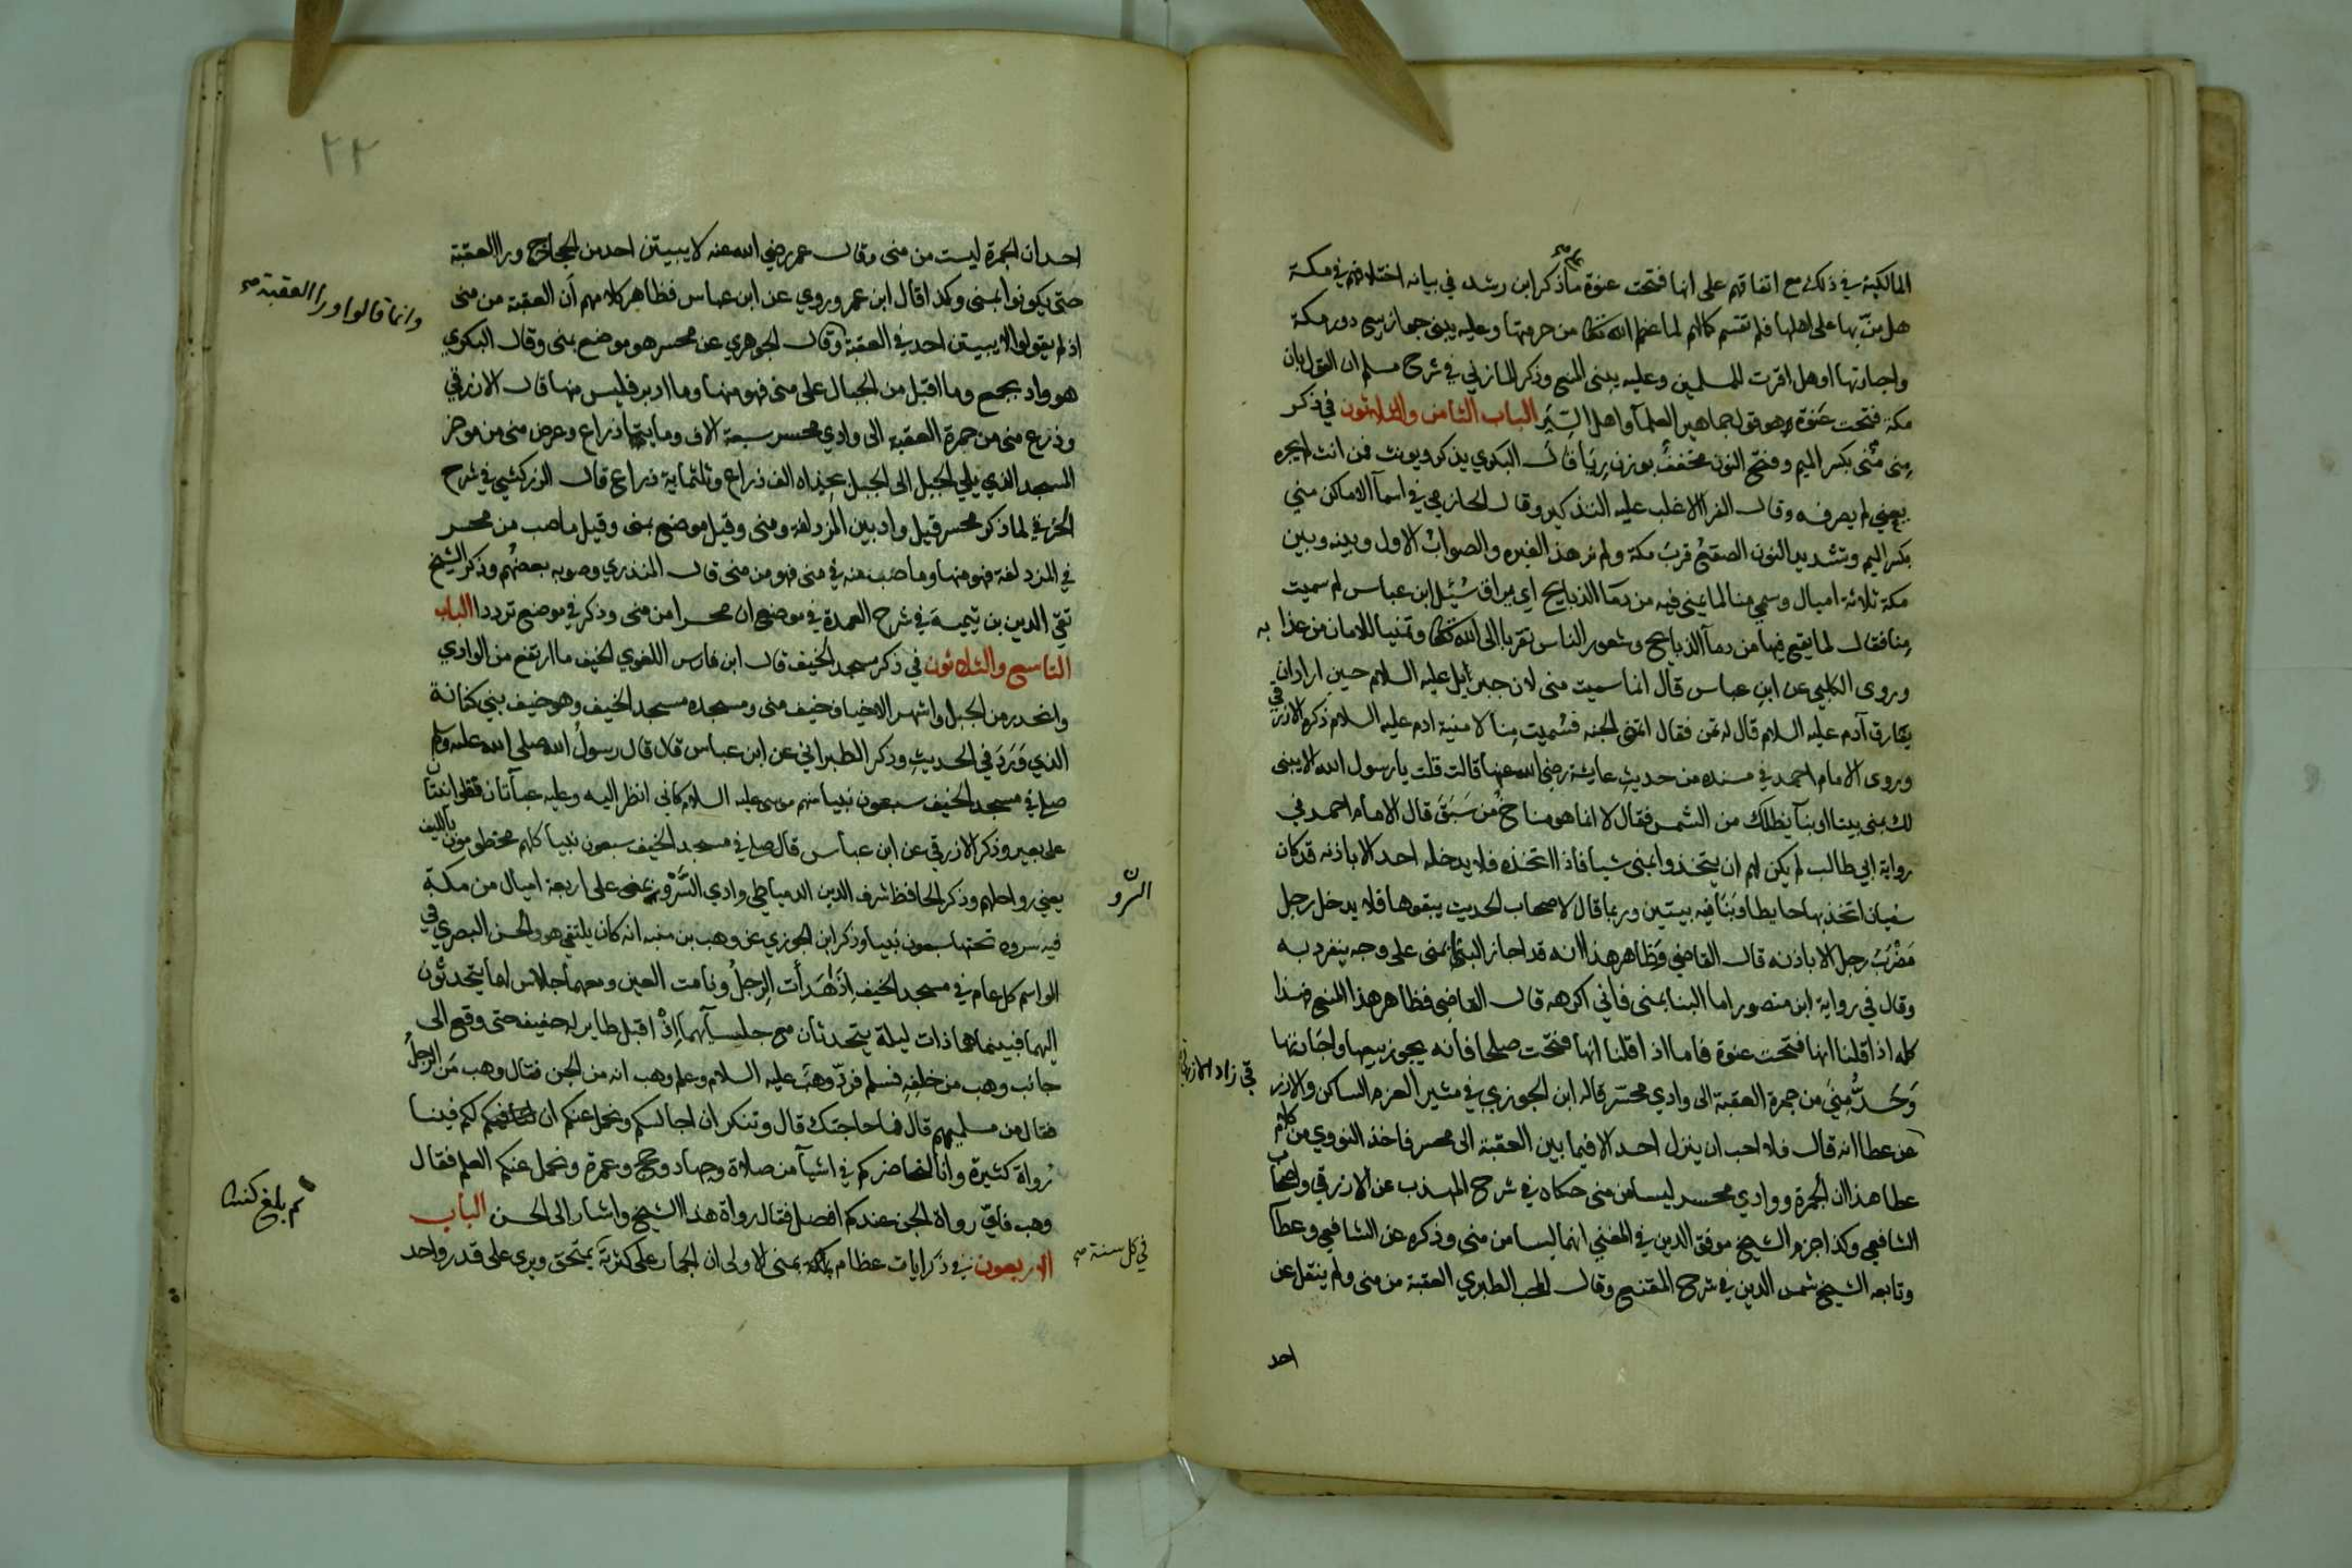 المالكية في ذلك مع اتفاقهم على انها فتحت عنوة ما ذكر ابن رشد في بيانه اختلافهم في مكة
هل منّ بها على اهلها فلم تقسم كما لم لما عظم الله من حرمتها وعليه ينبني جواز بيع دور مكة
واجارتها او هل اقرت للمسلمين وعليه ينبني المنع وذكر المازني في شرح مسلم ان القول بان
مكة فتحت عَنوة هو قول جماهير العلمآ واهل السِيَر الباب الثامن والثلاثون في ذكر
مِنى مِنى بكسر الميم وفتح النون مخففُ بوزن رِبَا قال البكري يذكر ويونث فمن انث لم يجره
يعني لم يصرفه وقال الفرا الاغلب عليه التذكير وقال الحازمي في اسمآ الاماكن مني
بكسر الميم وتشديد النون الصقعُ قربَ مكة ولم نر هذا لغيره والصوابُ الاول وبينه وبين
مكة ثلاثة اميال وسمي منا لما يمنى فيه من دمآ الذبايح اي يراق سُئِل ابن عباس لم سميت
مِنا فقال لما يقع فيها من دمآ الذبايح وشعور الناس تقربا الى الله وتمنيا للامان من عذابه
وروى الكلبي عن ابن عباس قال انما سميت منى لان جبرئيل عليه السلام حين اراد ان
يفارق آدم عليه السلام قال له تمن فقال اتمنى الجنه فسُميت مِنا لامنية ادم عليه السلام ذكره الازرقي
وروى الامام احمد في مسنده من حديثِ عايشة رضي الله عنها قالت قلت يا رسول الله الا يبنى
لك بمنى بيتا او بنآ يظلك من الشمس فقال لا انما هو مناخُ من سَبَقَ قال الامام احمد في
رواية ابي طالب لم يكن لهم ان يتخذوا بمنى شيا فاذا اتخذه فلا يدخله احد الا باذنه قد كان
سفيان اتخذ بها حايطا وبَنَا فيه بيتين وربما قال لاصحاب الحديث يبقوها فلا يدخل رجل
مَضْرَبَ رجل الا باذنه قال القاضي وَظاهر هذا انه قد اجاز البنا بمنى على وجه ينفرد به
وقال في رواية ابن منصور اما البنا بمنى فاني اكرهه قال القاضي فظاهر هذا المنع هذا
كله اذا قلنا انها فتحت عنوة فاما اذا قلنا انها فتحت صلحا فانه يجوز بيعها واجارتها
وَحَدُّ مِنىً من جمرة العقبة الى وادي محسّر قاله ابن الجوزي في مثير العزم الساكن والازرقي
قي زاد الازرقي
عن عطا انه قال فلا احب ان ينزل احد الا فيما بين العقبة الى محسر فاخذ النووي من كلام
عطا هذا ان الجمرة ووادي محسر ليسا من منى حكاه في شرح المهذب عن الازرقي واصحاب
الشافعي وكذا جزم الشيخ موفق الدين في المغني انهما ليسا من منى وذكره عن الشافعي وعطآ
وتابعه الشيخ شمس الدين في شرح المقنع وقال المحب الطبري العقبة من منى ولم ينقل عن
احد
٢٢
احد ان الجمرة ليست من منى وقال عمر رضي الله عنه لا يبيتن احد من الحجاج ورا العقبة
حتى يكونوا بمنى وكذا قال ابن عمر وروي عن ابن عباس فظاهر كلامهم أن العقبة من منى
وانما قالوا ورا العقبة صح
اذ لم يقولوا لا يبيتن احد في العقبة وقال الجوهري عن محسر هو موضع بمنى وقال البكري
هو واد بجمع وما اقبل من الجبال على منى فهو منها وما ادبر فليس منها قال الازرقي
وذرع منى من جمرة العقبة الى وادي محسر سبعة الاف ومايتا ذراع وعرض منى من موخر
المسجد الذي يلي الجبل الى الجبل بحذاه الف ذراع وثلثماية ذراع قال الزركشي في شرح
الخرقي لما ذكر محسر قيل واد بين المزدلفة ومنى وقيل موضع بمنى وقيل ما صب من محسر
في المزدلفة فهو منها وما صب منه في منى فهو من منى قال المنذري وصوبه بعضُهم وذكر الشيخ
تقي الدين بن تيمية في شرح العمدة في موضع ان محسرا من منى وذكر في موضع ترددا الباب
التاسع والثلاثون في ذكر مسجد الخيف قال ابن فارس اللغوي الخيف ما ارتفع من الوادي
وانحدر من الجبل واشهر الاخياف خيف منى ومسجده مسجد الخيف وهو خيف بني كنانة
الذي وَرَدَ في الحديثِ وذكر الطبراني عن ابن عباس قال قال رسولُ الله صلى الله عليه وسلم
صلى في مسجد الخيف سبعون نبيا منهم موسى عليه السلام كاني انظر اليه وعليه عبآتان قطوانيتان
على بعير وذكر الازرقي عن ابن عباس قال صلى في مسجد الخيف سبعون نبيا كلهم مخطومون بالليف
يعني رواحلهم وذكر الحافظ شرف الدين الدمياطي وادي السُّرَر بمنى على اربعة اميال من مكة
فيه سروه تحتها سبعون نبيا وذكر ابن الجوزي عن وهب بن منبه انه كان يلتقي هو والحسن البصري في
المواسم كل عام في مسجد الخيف اذا هَدَأت الرِجلُ ونامت العين ومعهما جلاس لهما يتحدثون
اليهما فبينما هما ذات ليلة يتحدثان مع جلسآيهما إذْ اقبل طاير له حفيف حتى وقع الى
جانب وهب من خلفِهِ فسلم فردّ وهبُ عليه السلام وعلم وهب انه من الجن فقال وهب مَن الرجلُ
فقال من مسلميهم قال فما حاجتك قال وتنكر ان نجالسكم ونحمل عنكم ان لكم فينا
رُواة كثيرة وانا لنحاضركم في اشيآ من صلاة وجهاد وحج وعمرة ونحمل عنكم العلم فقال
وهب فايّ رواة الجن عندكم افضل فقال رواة هذا الشيخ واشار الى الحسن الباب
الاربعون في ذكر ايات عظام بمنى الاولى ان الجمار على كثرة يمتحق ويرى على قدر واحد
في كل سنة صح